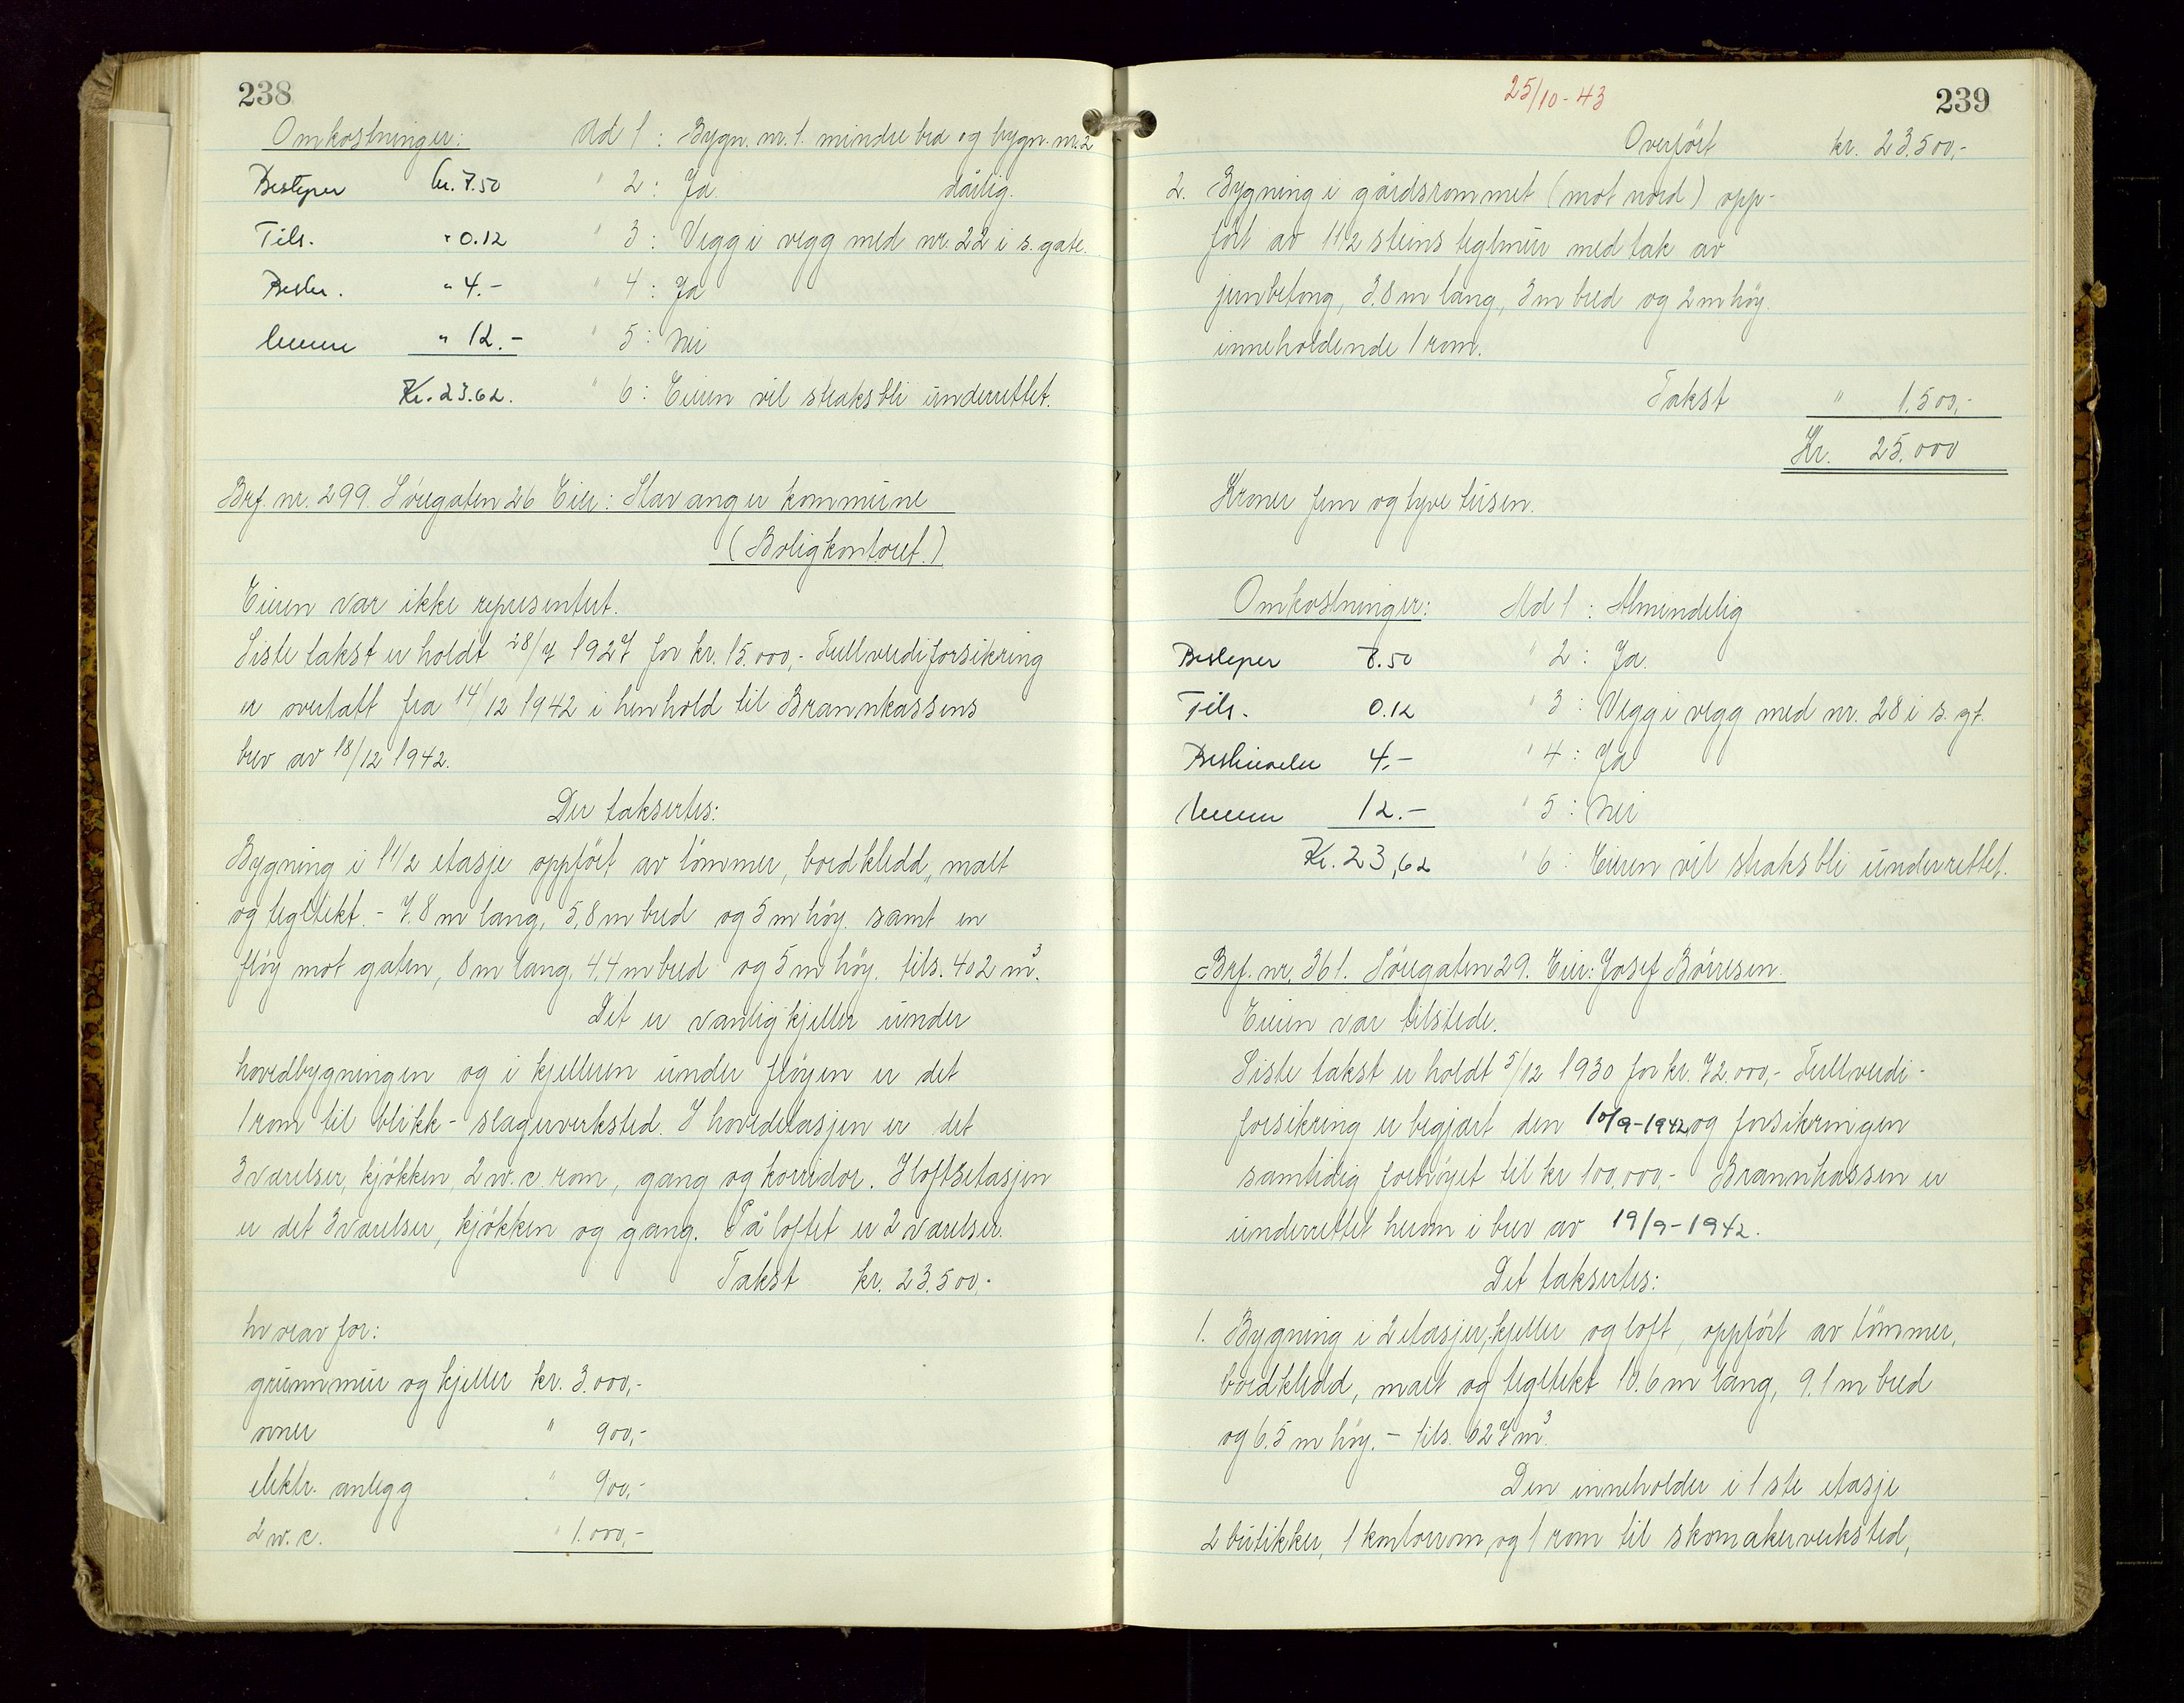 238
Omkostninger: Ad 1 : Bygn. nr. 1. mindre bra og bygn. nr. 2
kr. 7.50 " 2 : Ja. dårlig.
Tils. " 0.12 " 3 : Vegg i vegg med nr. 22 i s. gate.
Beskr. " 4.- " 4 : Ja
" 12.- " 5 : Nei
Kr. 23.62. " 6 : Eieren vil straks bli underrettet.
Brf. nr. 299. Søregaten 26 Eier: Stavanger kommune
(Boligkontoret.)
Eieren var ikke representert.
Siste takst er holdt 28/7 1927 for kr. 15.000,- Fullverdiforsikring
er overtatt fra 14/12 1942 i henhold til Brannkassens
brev av 18/12 1942.
Der takseres:
Bygning i 1 1/2 etasje oppført av tømmer, bordkledd, malt
og tegltekt. - 7.8 m lang, 5,8 m bred og 5 m høy. samt en
fløy mot gaten, 8 m lang, 4.4 m bred og 5 m høy. tils. 402 m³.
Det er vanlig kjeller under
hovedbygningen og i kjelleren under fløyen er det
1 rom til blikk-slagerverksted. I hovedetasjen er det
3 værelser, kjøkken, 2 w.c. rom, gang og korridor. I loftsetasjen
er det 3 værelser, kjøkken og gang. På loftet er 2 værelser.
Takst kr. 23.500.-
hvorav for:
grunnmur og kjeller kr. 3.000,-
ovner " 900,-
elektr. anlegg " 900,-
2 w.c. " 1.000,-
25/10-43
239
Overført kr. 23.500,-
2. Bygning i gårdsrommet (mot nord) opp-
ført av 1 1/2 steins teglmur med tak av
jernbetong, 3.8 m lang, 3 m bred og 2 m høy.
inneholdende 1 rom.
Takst " 1.500,-
Kr. 25.000
Kroner fem og tyve tusen.
Omkostninger: Ad 1 : Almindelig
7.50 " 2 : Ja.
Tils. 0.12 " 3 : Vegg i vegg med nr. 28 i s. gt.
Beskrivelse 4.- " 4 : Ja
12.- " 5 : Nei
Kr. 23,62 " 6 : Eieren vil straks bli underrettet.
Brf. nr. 361. Søregaten 29. Eier: Josef Børresen.
Eieren var tilstede.
Siste takst er holdt 5/12 1930 for kr. 72.000,- Fullverdi-
forsikring er begjært den 10/9-1942 og forsikringen
samtidig forhøyet til kr 100.000.- Brannkassen er
underrettet herom i brev av 19/9-1942.
Det takseres:
1. Bygning i 2 etasjer, kjeller og loft, oppført av tømmer,
bordkledd, malt og tegltekt 10.6 m lang, 9.1 m bred
og 6.5 m høy. - tils. 627 m³.
Den inneholder i 1ste etasje
2 butikker, 1 kontorrom og 1 rom til skomakerverksted,